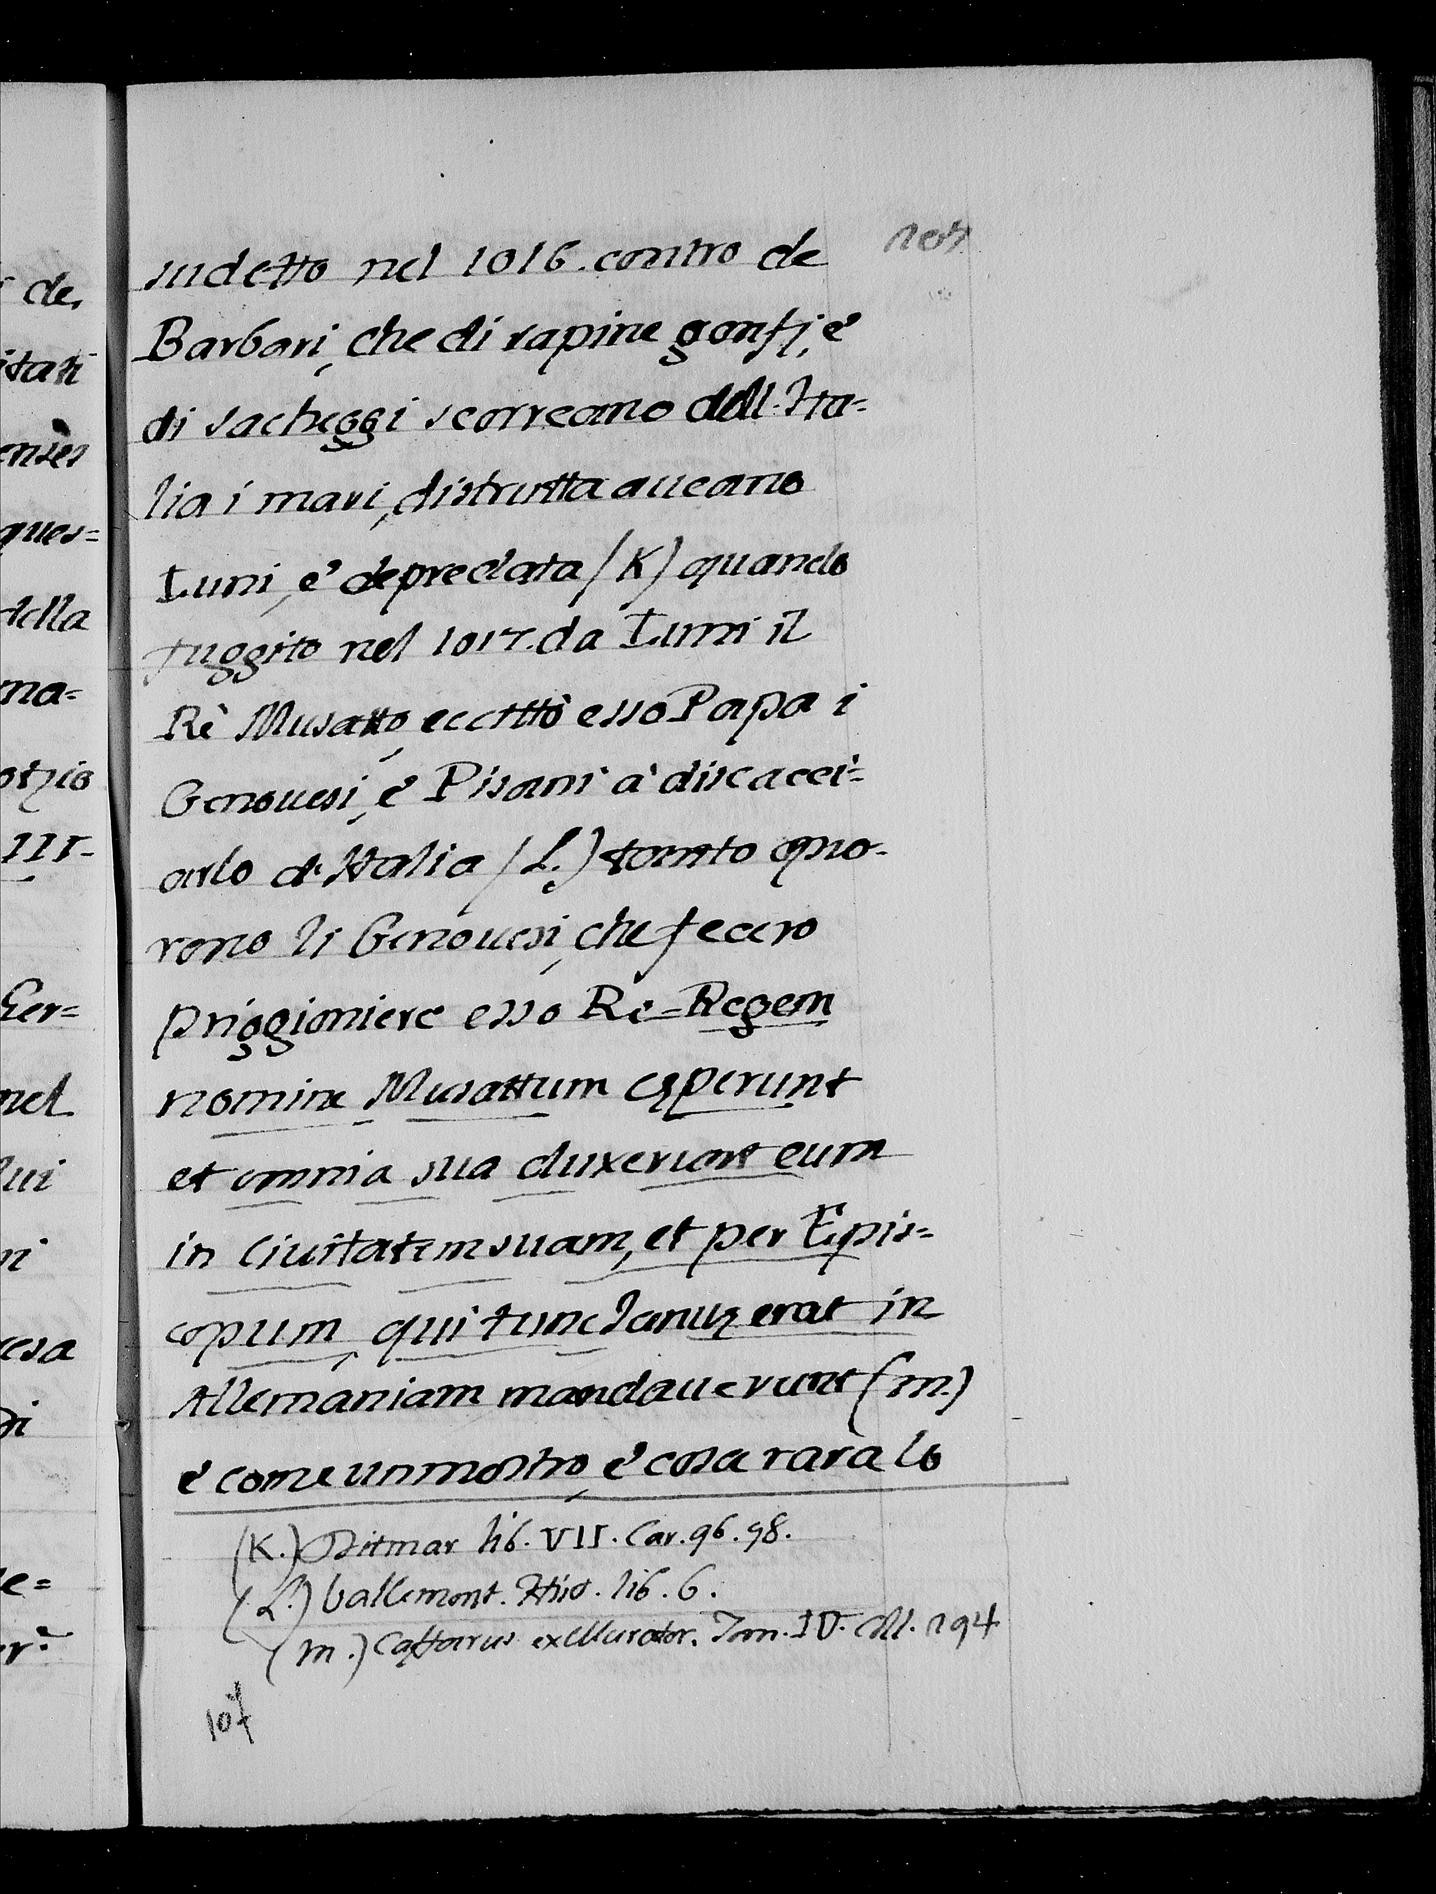 107
sudetto nel 1016. contro de
Barbari, che di rapine gonfj, è
di sacheggi scorreano dell'Ita=
lia i mari, distrutta aueano
Luni, è depredata (K) quando
fuggito nel 1017. da Luni il
Rè Musatto, eccittò esso Papa i
Genouesi, è Pisani à discacci=
arlo d'Italia (L.) tanto
rono li Genouesi, che fecero
priggioniere esso Re=Regem
nomine Musattum cęperunt
et omnia sua duxerunt eum
in Ciuitatem suam, et per Epis=
copum, qui tunc Ianuę erat in
Allemaniam mandauerunt (m.)
è come un mostro, è cosa rara lo
(K.) Ditmar lib. VII. Car. 96. 98.
(L.) Vallemont. Hist. lib. 6.
(m.) Caffarus ex Murator. Tom. IV. 294
107
de,
itati
ques=
della
ma=
III.
Ger=
nel
lui
ni
esa
Di
e=